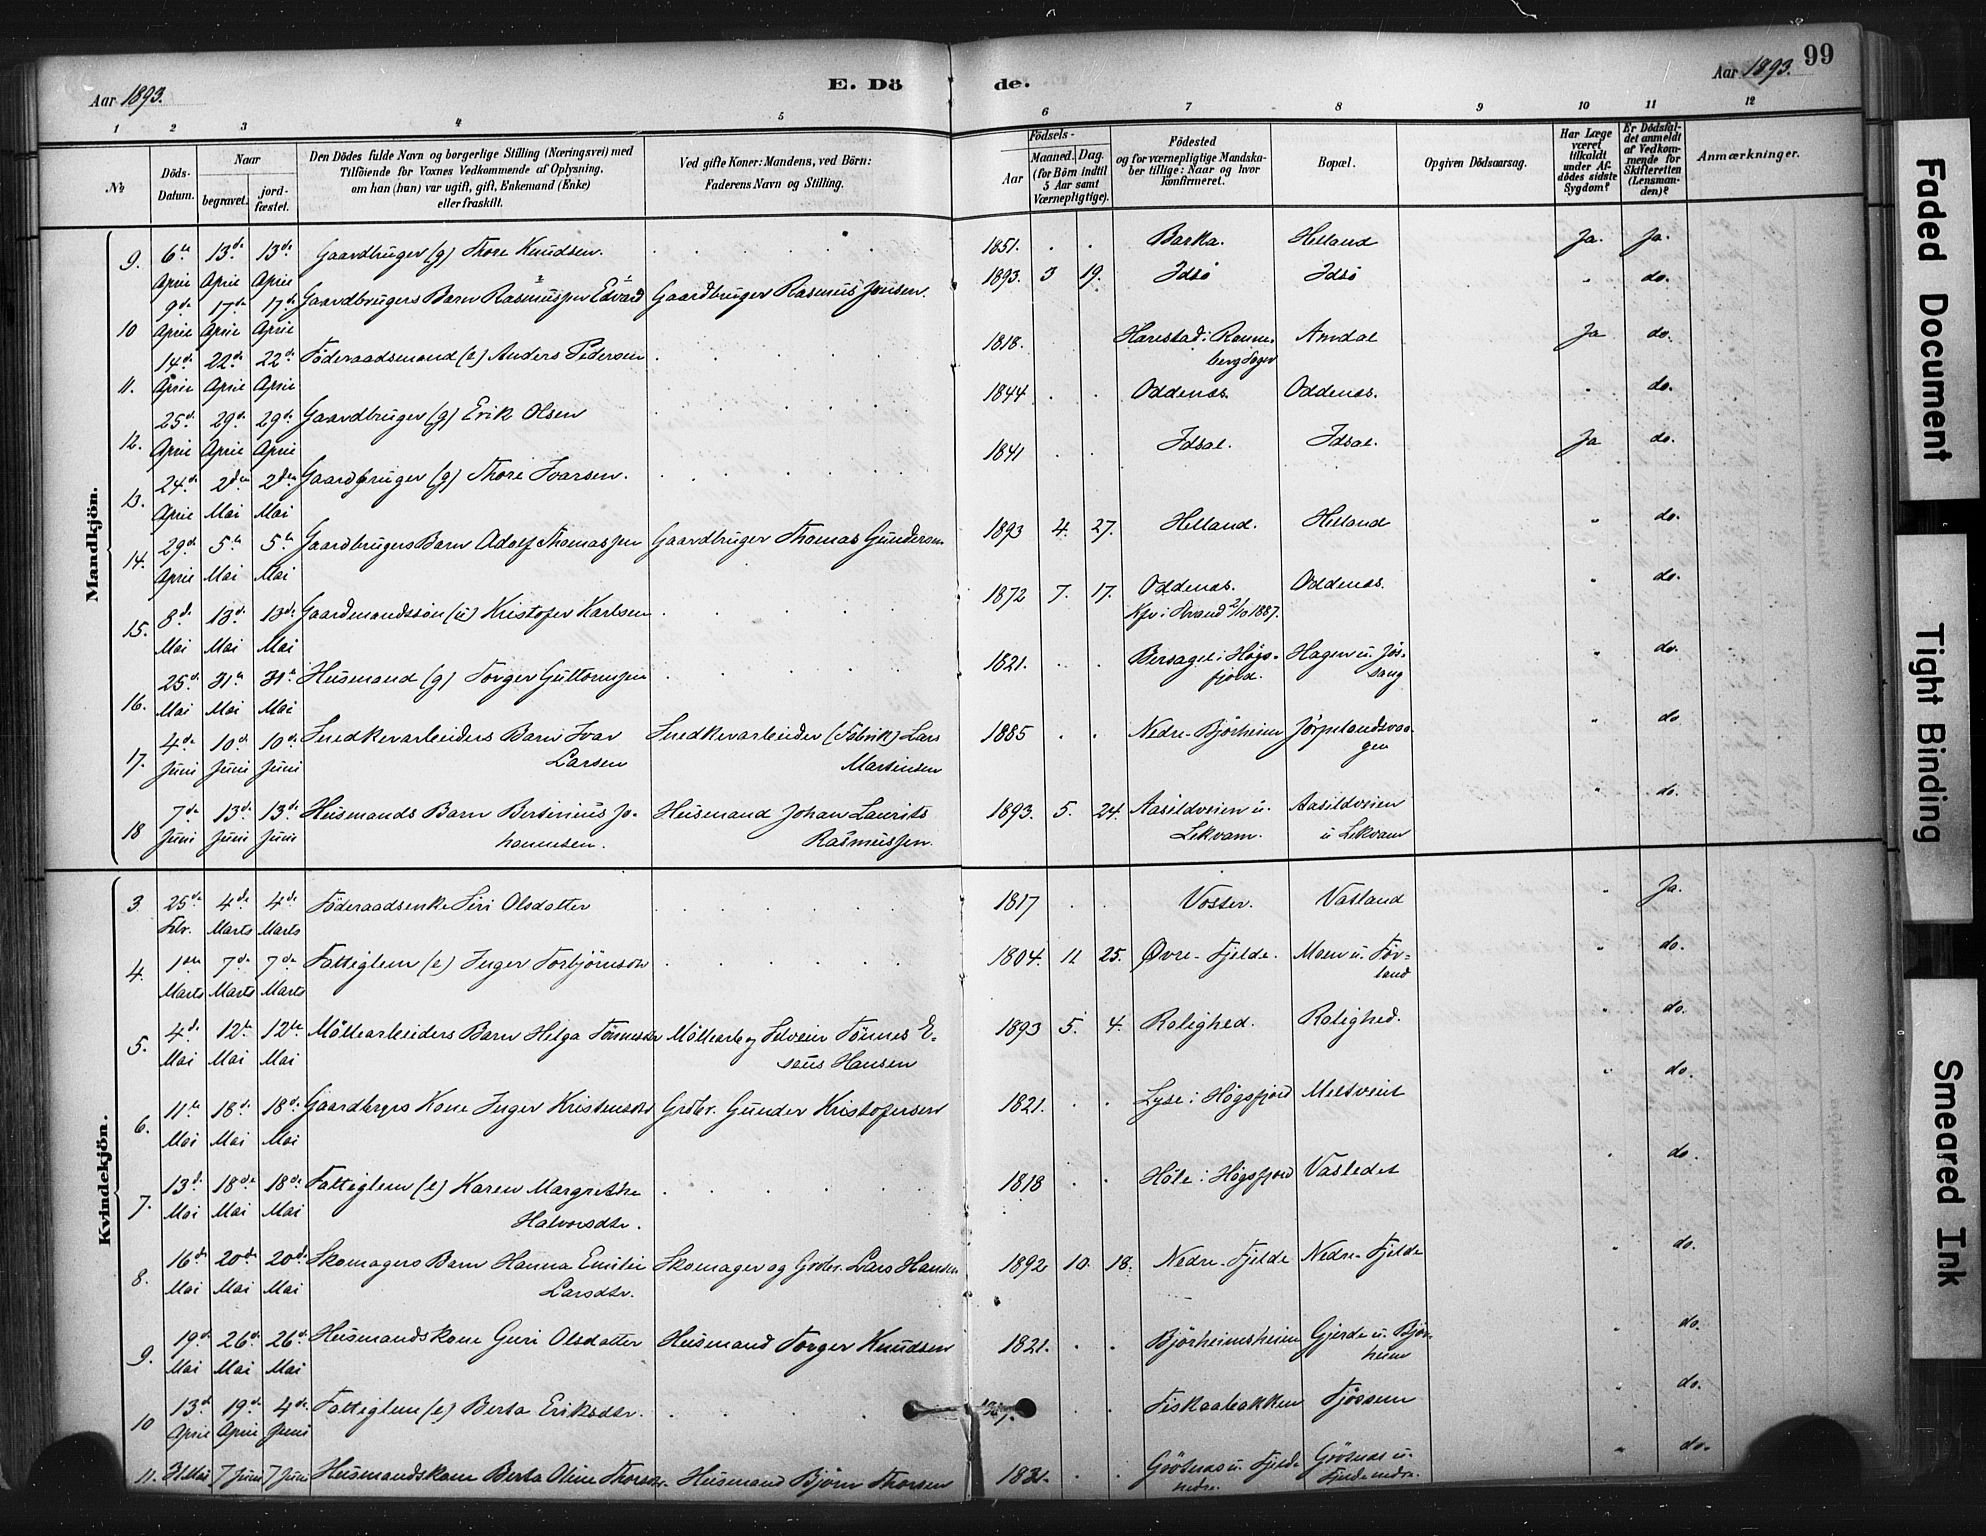 99
Aar 1893.
E. Dö
de.
Aar 1893.
1 2 3 4 5 6 7 8 9 10 11 12
No
Döds-
Datum.
Naar
begravet.
jord-
fæstet.
Den Dödes fulde Navn og borgerlige Stilling (Næringsvei) med
Tilföiende for Voxnes Vedkommende af Oplysning,
om han (hun) var ugift, gift, Enkemand (Enke)
eller fraskilt.
Ved gifte Koner: Mandens, ved Börn:
Faderens Navn og Stilling.
Födsels-
Aar
Maaned. Dag.
(for Börn indtil
5 Aar samt
Værnepligtige).
Födested
og for værnepligtige Mandska-
ber tillige: Naar og hvor
konfirmeret.
Bopæl.
Opgiven Dödsaarsag.
Har Læge
været
tilkaldt
under Af-
dödes sidste
Sygdom?
Er Dödsfal-
det anmeldt
af Vedkom-
mende for
Skifteretten
(Lensman-
den)?
Anmærkninger.
Mandkjön.
9. 6te April 13de April 13de April Gaardbruger (g) Thore Knudsen. 1851. Barka. Helland Ja. Ja.
10 9de April 17de April 17de April Gaardbrugers Barn Rasmussen Edvard Gaardbruger Rasmus Jonsen. 1893. 3 19. Idsö Idsö " do.
11. 14de April 22de April 22de April Föderaadsmand (e) Anders Pedersen 1818. Harestad i
Amdal Ja do.
12. 25de April 29de April 29de April Gaardbruger (g) Erik Olsen 1844 Oddenæs. Oddenæs. " do.
13. 24de April 2den Mai 2den Mai Gaardbruger (g) Thore Ivarsen. 1841 Idsal. Idsal. Ja do.
14. 29de April 5te Mai 5te Mai Gaardbrugers Barn Adolf Thomassen Gaardbruger Thomas Gundersen 1893 4. 27. Helland. Helland " do.
15. 8de Mai 13de Mai 13de Mai Gaardmandssön (u) Kristofer Karlsen 1872 7. 17. Oddenæs. Oddenæs. " do.
Kfr i Strand 2/10 1887.
16. 25de Mai 31te Mai 31te Mai Husmand (g) Torger Guttormsen 1821. Bersagel i Högs- Hagen u. Jös- " do.
fjord. sang
17. 4de Juni 10de Juni 10de Juni Snedkerarbeiders Barn Ivar Snedkerarbeider (Fabrik) Lars 1885 Nedre-Björheim Jörpelandsvaa- " do
Larsen Martinsen gen
18 7de Juni 13de Juni 13de Juni Husmands Barn Bertinius Jo- Husmand Johan Laurits 1893. 5. 24. Aasildveien u. Aasildveien " do.
hannesen. Rasmussen. Lekvam. u Lekvam
Kvindekjön.
3 25de Febr. 4de Marts 4de Marts Föderaadsenke Siri Olsdatter 1817 Vosser. Vatland " Ja.
4. 1ste Marts 7de Marts 7de Marts Fattiglem (e) Inger Torbjörnsdtr 1804. 11 25. Øvre-Fjelde. Moen u. Tøv- " do.
land
5. 4de Mai 12te Mai 12te Mai Möllearbeiders Barn Helga Tönnesdtr Möllearb og Selveier Tönnes E- 1893 5. 4. Rolighed. Rolighed. " do.
saus Hansen
6. 11te Mai 18de Mai 18de Mai Gaardbrgrs Kone Inger Kristensdtr Grdbr. Gunder Kristofersen 1821. Lyse i Högsfjord Meltveit " do.
7. 13de Mai 18de Mai 18de Mai Fattiglem (e) Karen Margrethe 1818 Höle i Högsfjord Vasledet " do.
Halvorsdtr.
8. 16de Mai 20de Mai 20de Mai Skomagers Barn Hanna Emilie Skomager og Grdbr. Lars Hansen 1892 10. 18. Nedre-Fjelde Nedre-Fjelde " do.
Larsdtr.
9. 19de Mai 26de Mai 26de Mai Husmandskone Guri Olsdatter Husmand Torger Knudsen 1821. Björheimsheien Gjerde u. Björ- " do.
heim
10 13de April 19de April 4de Juni Fattiglem (e) Berta Eriksdtr. Fiskaabakken Tjössem " do.
11. 31 Mai 7 Juni 7 Juni Husmandskone Berta Oline Thorsdtr. Husmand Björn Thorsen 1831. Grötnæs u. Fjelde Grötnæs u. " do.
nedre. Fjelde nedre.
Faded Document
Tight Binding
Smeared Ink